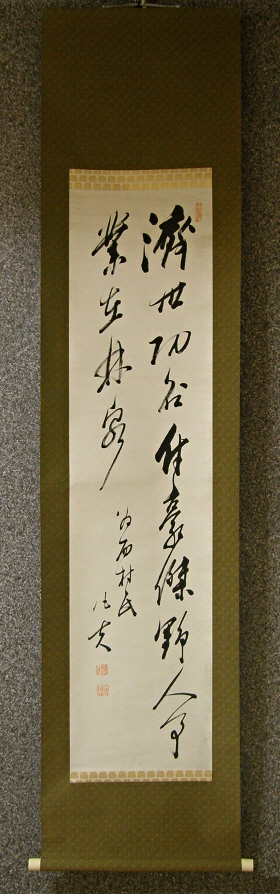 濟世功名付豪傑野人事
業在林泉
為西村氏